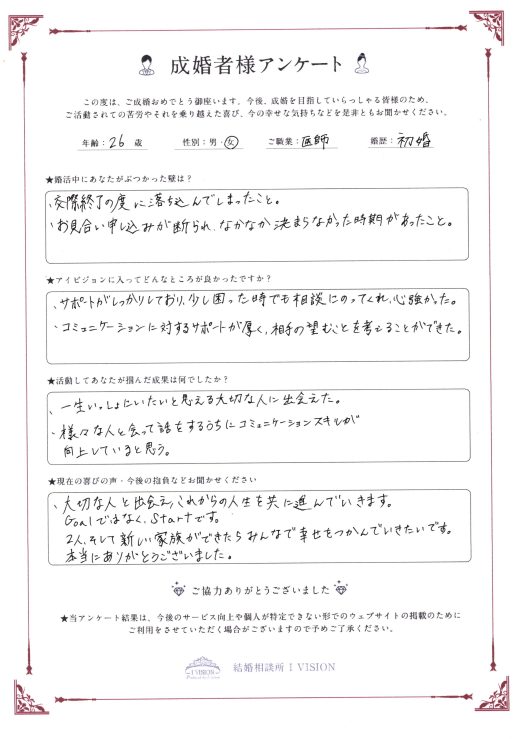 成婚者様アンケート
この度は、ご成婚おめでとう御座います。今後、成婚を目指していらっしゃる皆様のため、
ご活動されての苦労やそれを乗り越えた喜び、今の幸せな気持ちなどを是非ともお聞かせください。
年齢：26 歳 性別：男・女 ご職業：医師 婚歴：初婚
★婚活中にあなたがぶつかった壁は？
・交際終了の度に落ち込んでしまったこと。
・お見合い申し込みが断られ、なかなか決まらなかった時期があったこと。
★アイビジョンに入ってどんなところが良かったですか？
・サポートがしっかりしており、少し困った時でも相談にのってくれ、心強かった。
・コミュニケーションに対するサポートが厚く、相手の望むことを考えることができた。
★活動してあなたが掴んだ成果は何でしたか？
・一生いっしょにいたいと思える大切な人に出会えた。
・様々な人と会って話をするうちにコミュニケーションスキルが
向上していると思う。
★現在の喜びの声・今後の抱負などお聞かせください
・大切な人と出会え、これからの人生を共に進んでいきます。
Goalではなく、Startです。
2人、そして新しい家族ができたらみんなで幸せをつかんでいきたいです。
本当にありがとうございました。
ご協力ありがとうございました
★当アンケート結果は、今後のサービス向上や個人が特定できない形でのウェブサイトの掲載のために
ご利用をさせていただく場合がございますので予めご了承ください。
I VISION
結婚相談所 I VISION